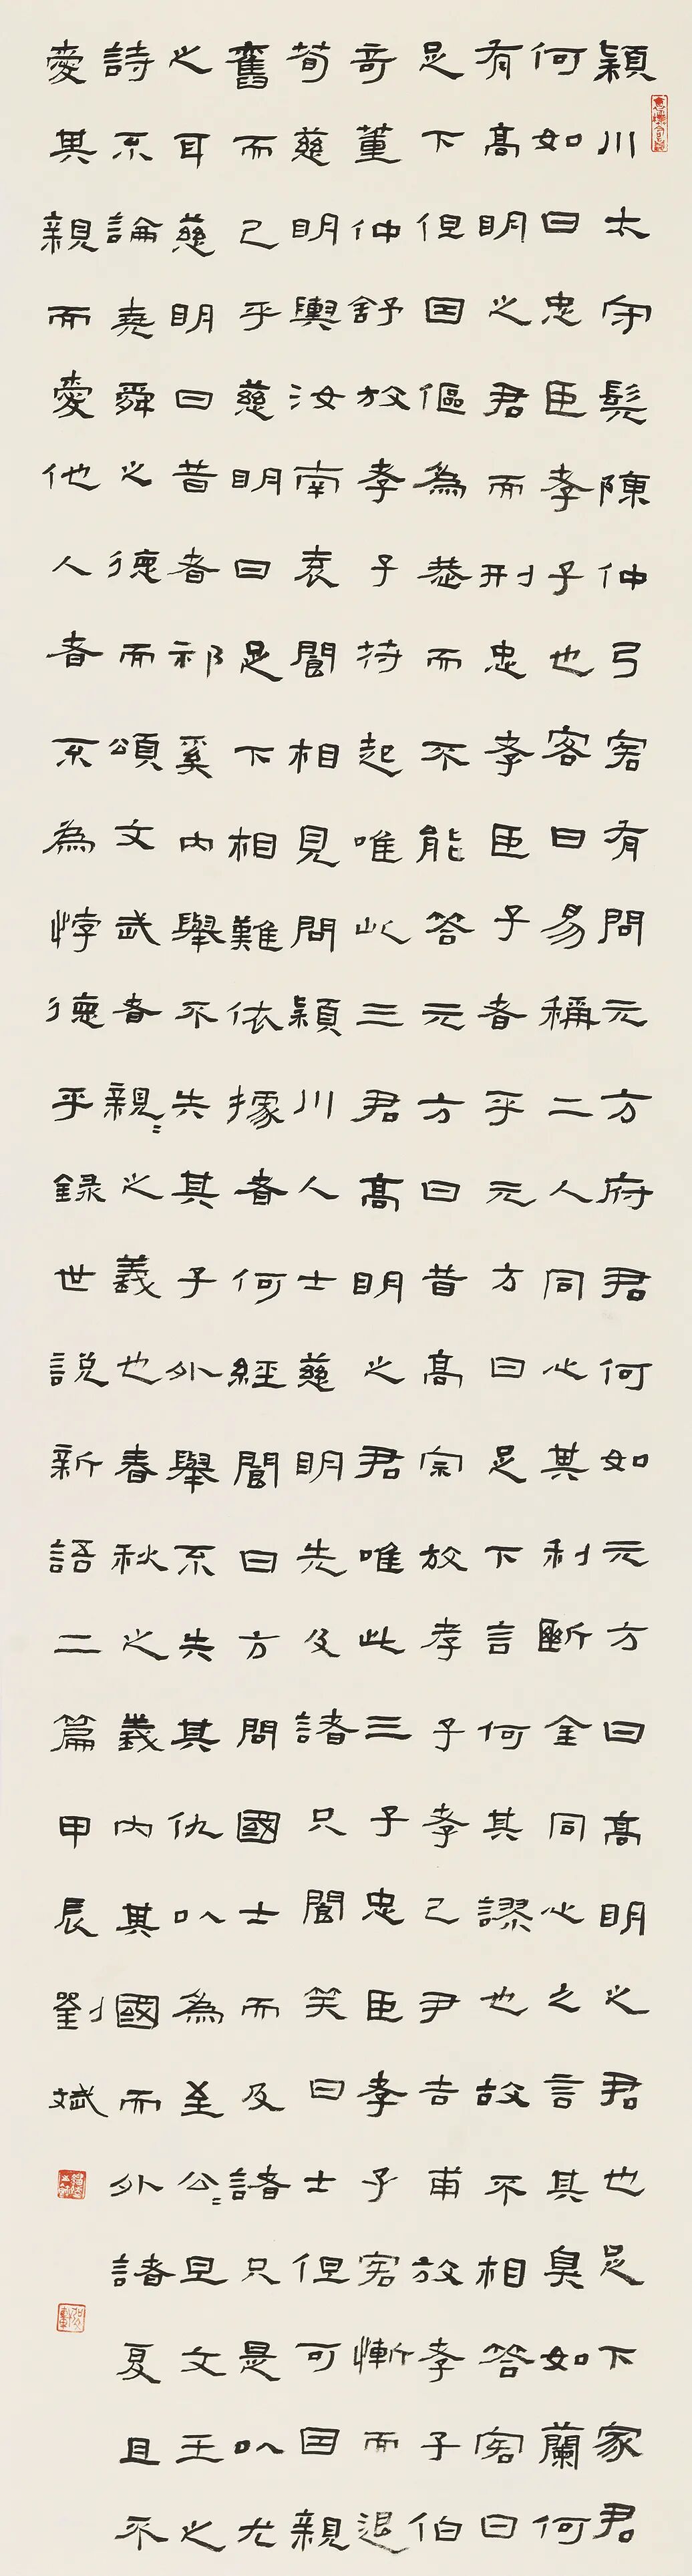 穎川太守髡陳仲弓客有問元方府君何如元方曰高明之君也足下家君
何如曰忠臣孝子也客曰易稱二人同心其利斷金同心之言其臭如蘭何
有高明之君而刑忠孝臣子者乎元方曰足下言何其謬也故不相答客曰
足下但因傴為恭而不能答元方曰昔高宗放孝子孝己尹吉甫放孝子伯
奇董仲舒放孝子符起唯此三君高明之君唯此三子忠臣孝子客慚而退
荀慈明與汝南袁閬相見問穎川人士慈明先及諸兄閬笑曰士但可因親
舊而已乎慈明曰足下相難依據者何經閬曰方問國士而及諸兄是以尤
之耳慈明曰昔者祁奚內舉不失其子外舉不失其仇以為至公〻旦文王之
詩不論堯舜之德而頌文武者親〻之義也春秋之義內其國而外諸夏且不
愛其親而愛他人者不為悖德乎錄世說新語二篇甲辰劉斌